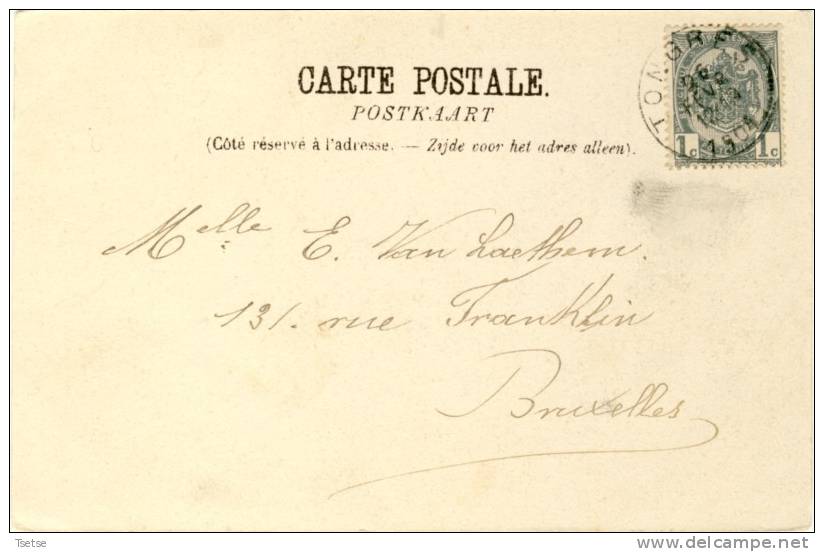 CARTE POSTALE.
POSTKAART
(Côté réservé à l'adresse. — Zijde voor het adres alleen).
TONGRES
1901
1c 1c
Melle E. Van Laethem.
131. rue Franklin
Bruxelles
Tsetse
delcampe.net